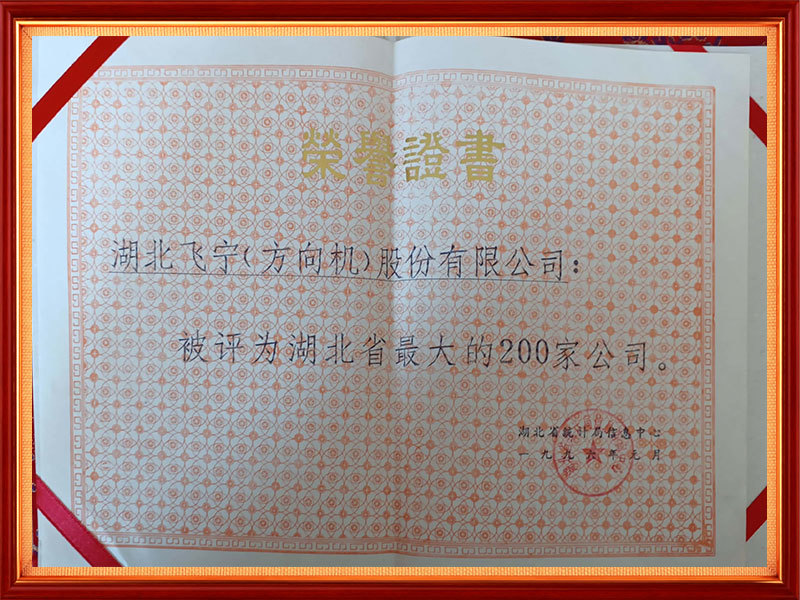 榮譽證書
湖北飞宁(方向机)股份有限公司：
被评为湖北省最大的200家公司。
湖北省统计局信息中心
一九九六年元月